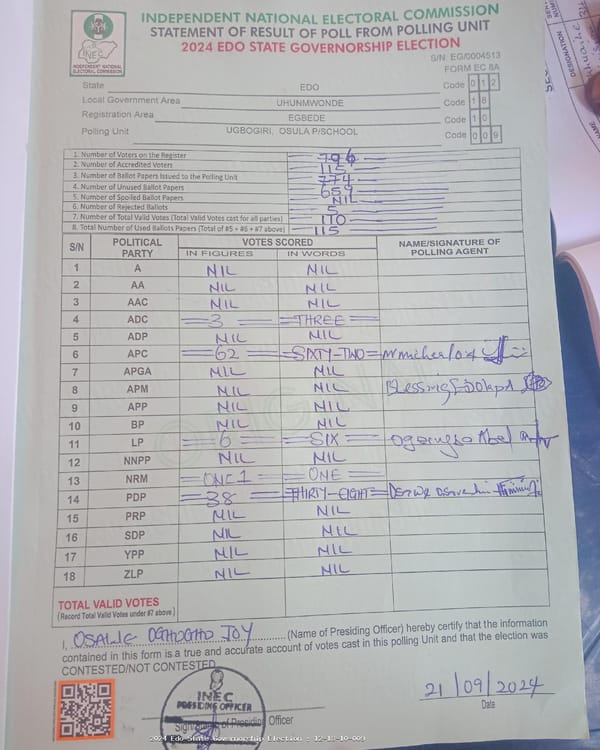 INDEPENDENT NATIONAL ELECTORAL COMMISSION
STATEMENT OF RESULT OF POLL FROM POLLING UNIT
2024 EDO STATE GOVERNORSHIP ELECTION
INEC
INDEPENDENT NATIONAL ELECTORAL COMMISSION
S/N: EG/0004513
FORM EC 8A
State EDO Code 012
Local Government Area UHUNMWONDE Code 18
Registration Area EGBEDE Code 10
Polling Unit UGBOGIRI, OSULA P/SCHOOL Code 009
1. Number of Voters on the Register 796
2. Number of Accredited Voters 115
3. Number of Ballot Papers Issued to the Polling Unit 774
4. Number of Unused Ballot Papers 659
5. Number of Spoiled Ballot Papers NIL
6. Number of Rejected Ballots 5
7. Number of Total Valid Votes (Total Valid Votes cast for all parties) 110
8. Total Number of Used Ballots Papers (Total of #5 + #6 + #7 above) 115
S/N POLITICAL PARTY VOTES SCORED NAME/SIGNATURE OF POLLING AGENT
IN FIGURES IN WORDS
1 A NIL NIL
2 AA NIL NIL
3 AAC NIL NIL
4 ADC 3 THREE
5 ADP NIL NIL
6 APC 62 SIXTY-TWO
7 APGA NIL NIL
8 APM NIL NIL Blessing
9 APP NIL NIL
10 BP NIL NIL
11 LP 6 SIX Abel
12 NNPP NIL NIL
13 NRM ONE 1 ONE
14 PDP 38 THIRTY-EIGHT
15 PRP NIL NIL
16 SDP NIL NIL
17 YPP NIL NIL
18 ZLP NIL NIL
TOTAL VALID VOTES
(Record Total Valid Votes under #7 above)
I, JOY (Name of Presiding Officer) hereby certify that the information
contained in this form is a true and accurate account of votes cast in this polling Unit and that the election was
CONTESTED/NOT CONTESTED
INEC
PRESIDING OFFICER
Signature of Presiding Officer
21/09/2024
Date
2024 Edo State Governorship Election - 12-18-10-009
DESIGNATION